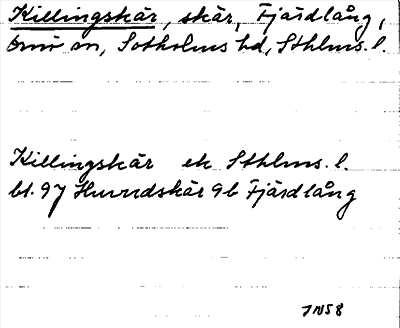 Killingskär, skär, Fjärdlång,
Ornö sn, Sotholms hd, Sthlms. l.
Killingskär ek Sthlms. l.
bl. 97 Huvudskär 9b Fjärdlång
JN58